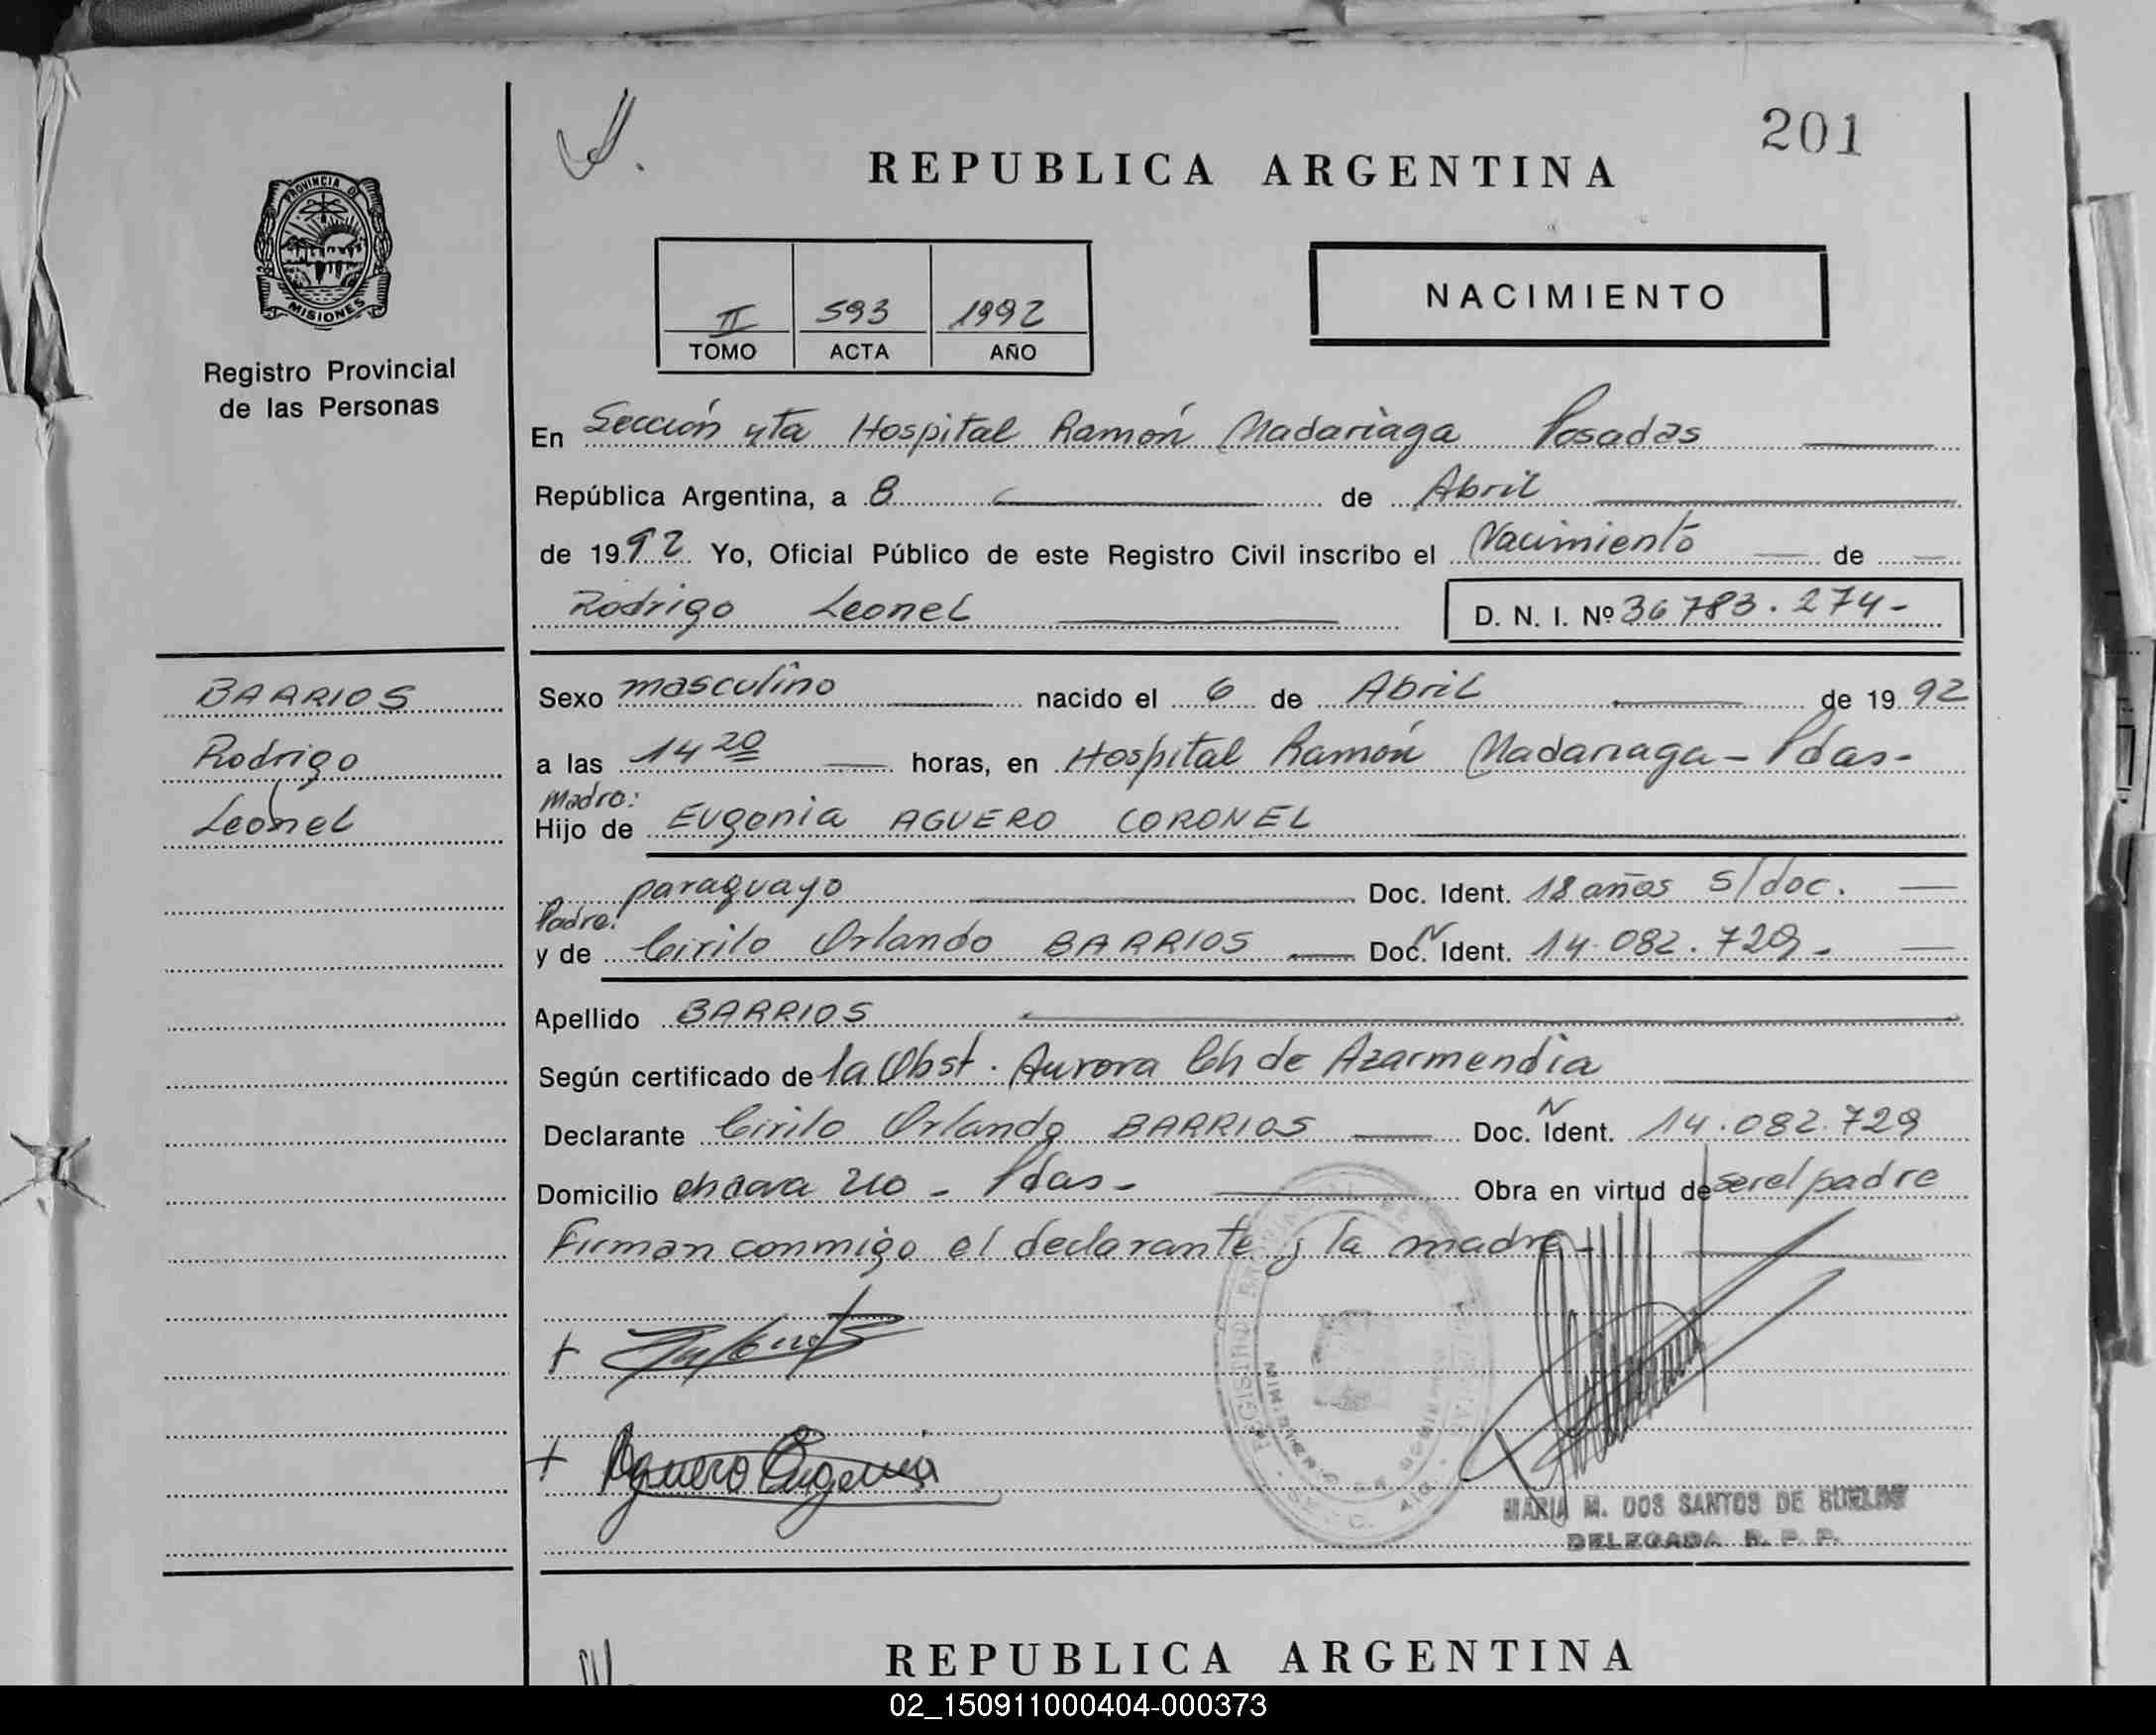 201
REPUBLICA ARGENTINA
PROVINCIA DE
MISIONES
Registro Provincial
de las Personas
II 593 1992
TOMO ACTA AÑO
NACIMIENTO
En Sección 4ta Hospital Ramón Madariaga Posadas
República Argentina, a 8 de Abril
de 1992 Yo, Oficial Público de este Registro Civil inscribo el Nacimiento de
Rodrigo Leonel D. N. I. Nº 36783.274-
BARRIOS
Rodrigo
Leonel
Sexo masculino nacido el 6 de Abril de 1992
a las 14 20 horas, en Hospital Ramón Madariaga - Pdas-
Madre:
Hijo de Eugenia AGUERO CORONEL
paraguayo Doc. Ident. 18 años s/doc.
Padre:
y de Cirilo Orlando BARRIOS Doc. N Ident. 14.082.729-
Apellido BARRIOS
Según certificado de la Obst. Aurora Ch de Azarmendia
Declarante Cirilo Orlando BARRIOS Doc. N Ident. 14.082.729
Domicilio chacra 210 - Pdas- Obra en virtud de ser el padre
Firman conmigo el declarante y la madre-
+
+ Aguero Eugenia
MARIA M. DOS SANTOS DE
DELEGADA R. P. P.
REPUBLICA ARGENTINA
02_150911000404-000373